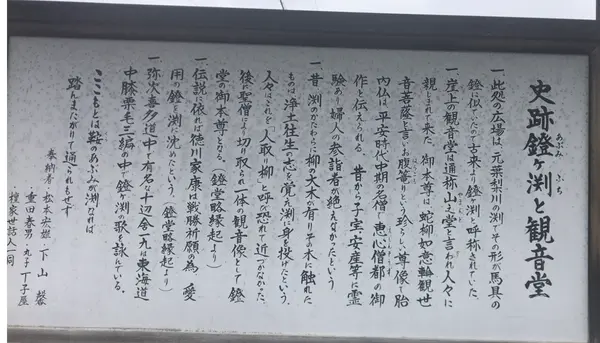 史跡鐙ヶ渕と観音堂
あぶみ ふち
一、此処の広場は、元葉梨川の渕でその形が馬具の
鐙に似ていたので古来より鐙ヶ渕と呼称されていた。
一、崖上の観音堂は通称山の堂と言われ人々に
親しまれて来た。御本尊は、蛇柳如意輪観世
音菩薩と言いお腹篭りという珍らしい尊像で胎
はらごも
内仏は平安時代中期の名僧、恵心僧都の御
作と伝えられる。昔から子宝・安産等に霊
験あり婦人の参詣者が絶えなかったという。
一、昔、渕のかたわらに柳の大木が有りその木に触れた
ものは浄土往生の志を覚え渕に身を投げたという。
人々はこれを「人取り柳」と呼び恐れて近づかなかった。
後に聖僧により切り取られ一体の観音像として鐙
堂の御本尊となる。(鐙堂略縁起より)
一、伝説に依れば徳川家康は戦勝祈願の為、愛
用の鐙を渕に沈めたという。(鐙堂略縁起より)
一、弥次喜多道中で有名な十辺舎一九は東海道
中膝栗毛三編の中で鐙ヶ渕の歌を詠んでいる。
ここもとは鞍のあぶみが渕なれば
踏んまたがりて通られもせず
奉納者・松本央雄・下山 馨
・重田春男・丸子丁子屋
・檀家世話人一同